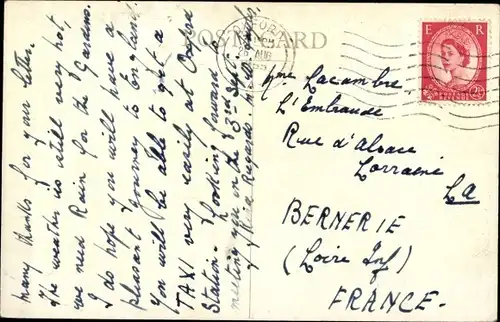 many thanks for your letter.
The weather is still very hot,
we need Rain for the Gardens.
I do hope you will have a
pleasant journey to England
You will be able to get a
TAXI very easily at Oxford
Station. Looking forward to
meeting you on the 3rd Sept.
Regards
POST CARD
OXFORD
AUG
E R
2½
Mme Lacambre
L'Embraude
Rue d'Alsace
Lorraine
La
BERNERIE
(Loire Inf)
FRANCE.